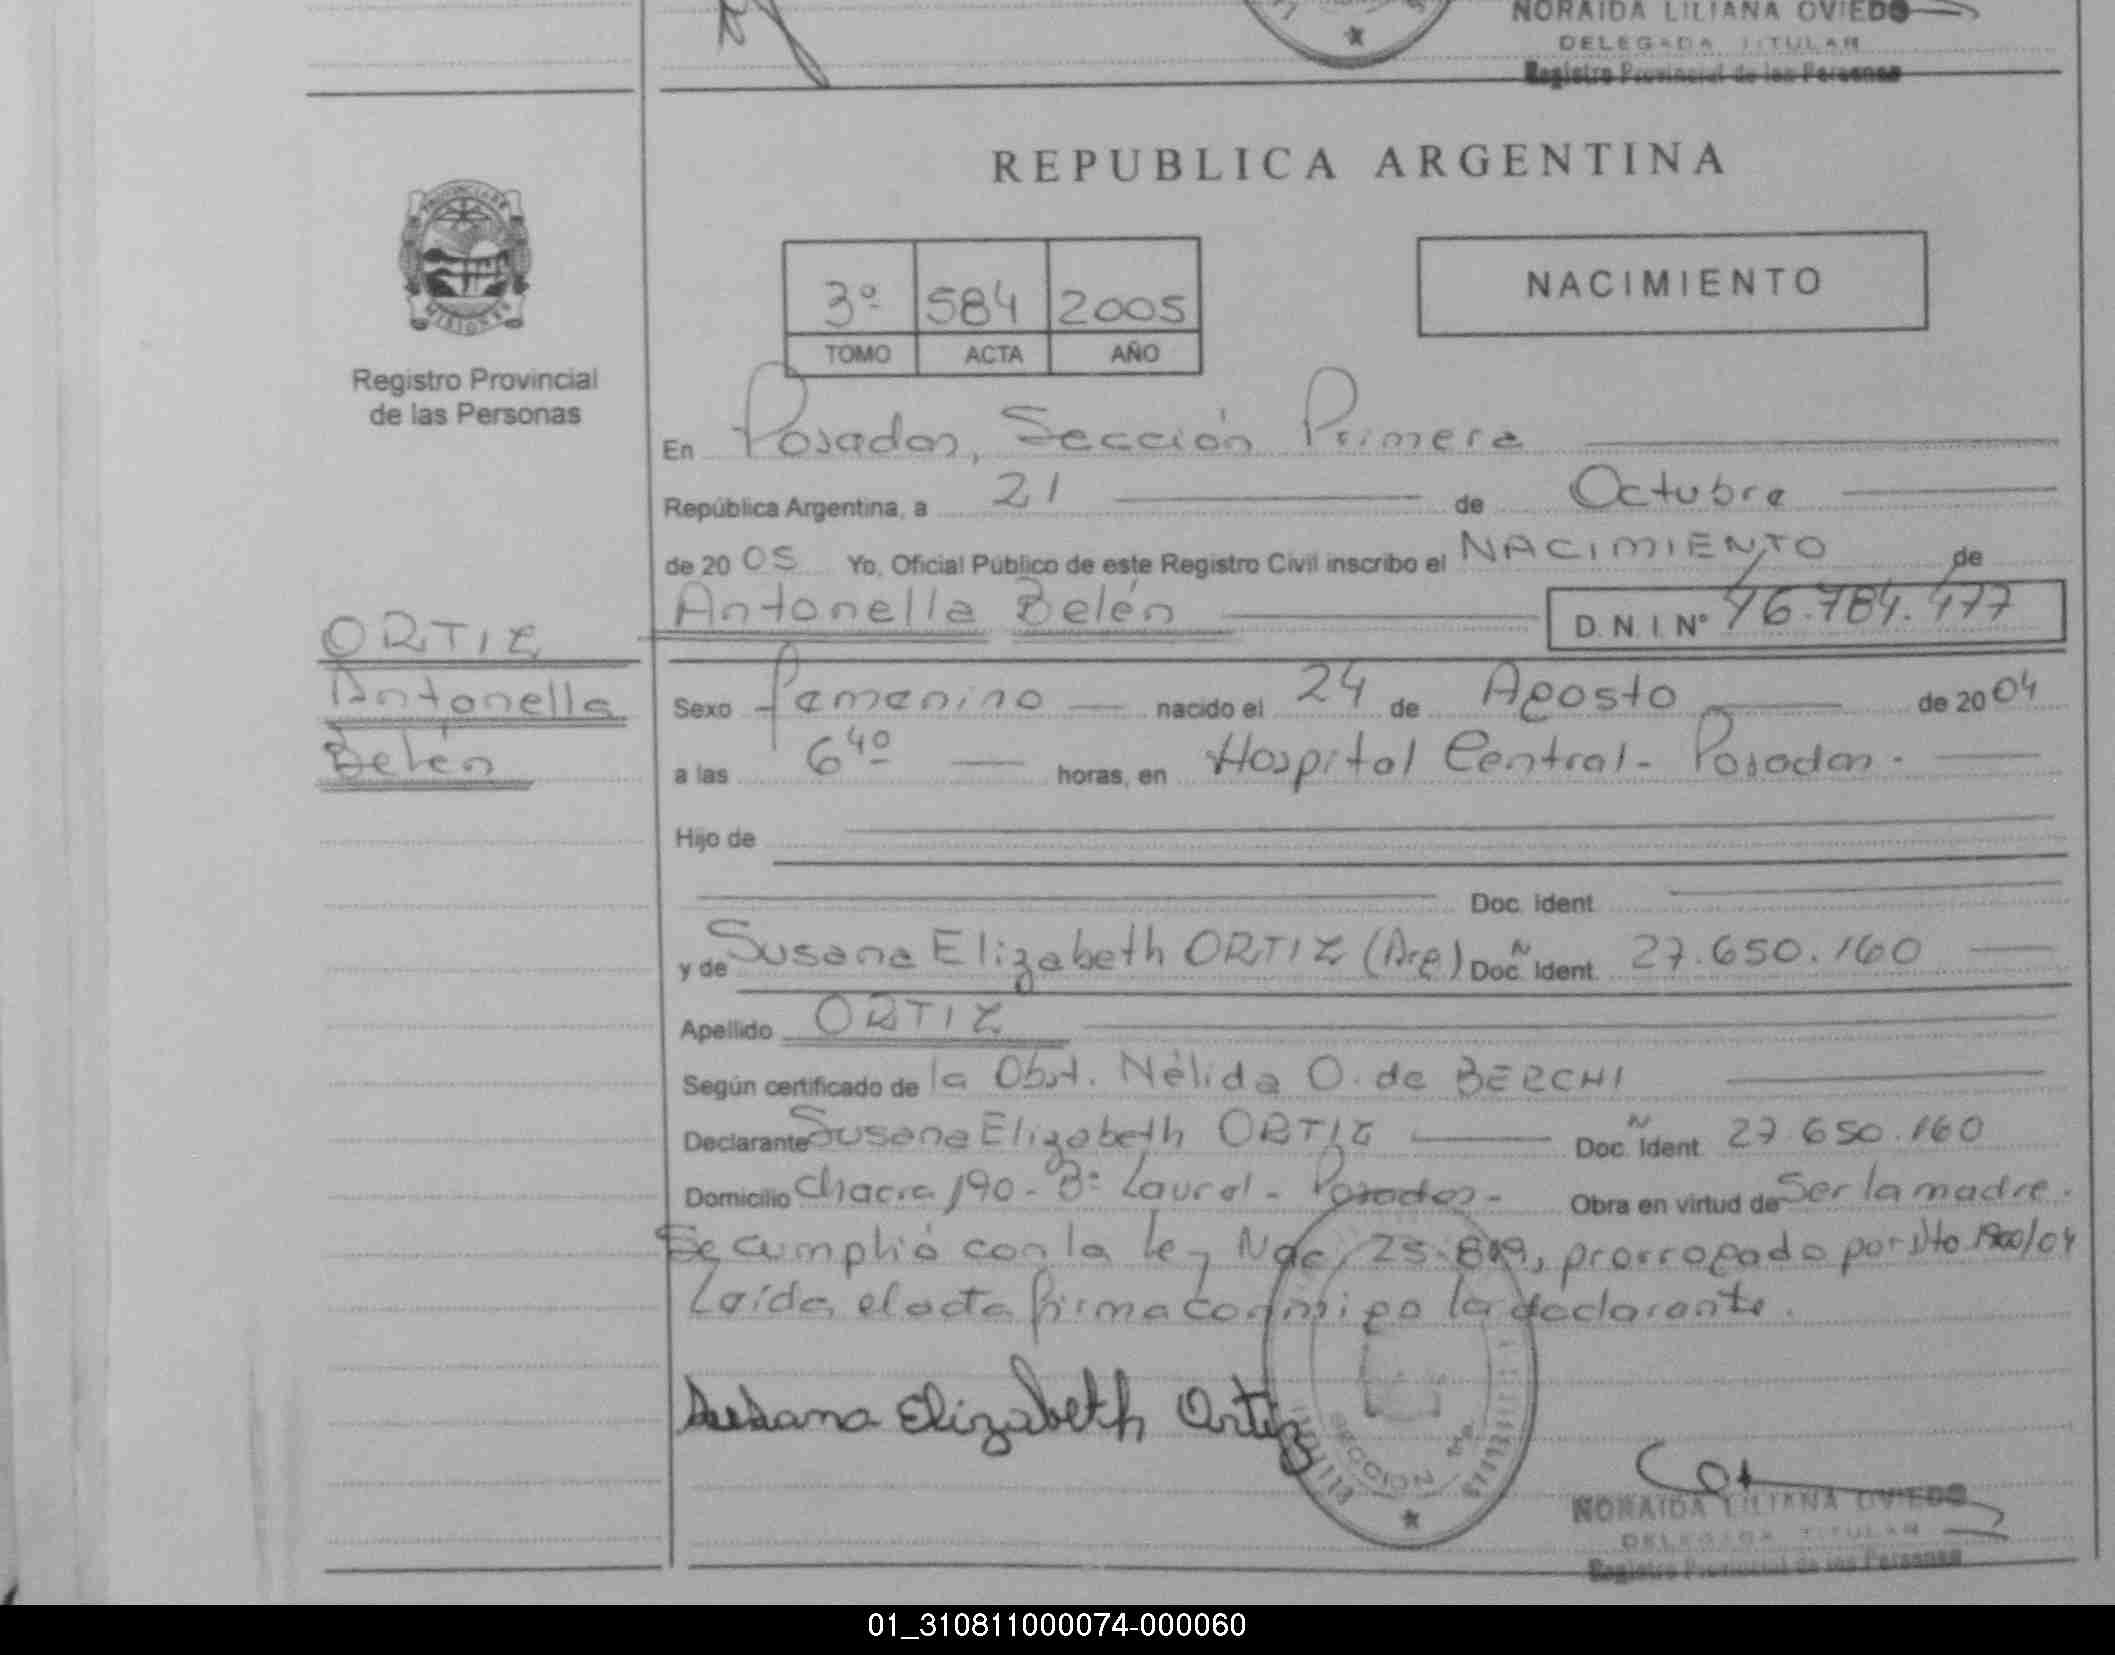 NORAIDA LILIANA OVIEDO
DELEGADA TITULAR
Registro Provincial de las Personas
REPUBLICA ARGENTINA
PROVINCIA DE
MISIONES
Registro Provincial
de las Personas
3º 584 2005
TOMO ACTA AÑO
NACIMIENTO
En Posadas, Sección Primera
República Argentina, a 21 de Octubre
de 20 05 Yo, Oficial Público de este Registro Civil inscribo el NACIMIENTO de
Antonella Belén D.N.I. Nº 46.784.477
ORTIZ
Antonella
Belén
Sexo femenino nacido el 24 de Agosto de 20 04
a las 6 40 horas, en Hospital Central - Posadas.
Hijo de
Doc. ident.
y de Susana Elizabeth ORTIZ (Arg) Doc. Ident. N 27.650.160
Apellido ORTIZ
Según certificado de la Obst. Nélida O. de BERCHI
Declarante Susana Elizabeth ORTIZ Doc. Ident. N 27.650.160
Domicilio Chacra 190 - Bº Laurel - Posadas - Obra en virtud de Ser la madre.
Se cumplió con la ley Nac. 25.819, prorrogado por Dto /04
Leída el acta firma conmigo la declarante.
Susana Elizabeth Ortiz
SECCION 1ra
NORAIDA LILIANA OVIEDO
DELEGADA TITULAR
Registro Provincial de las Personas
01_310811000074-000060